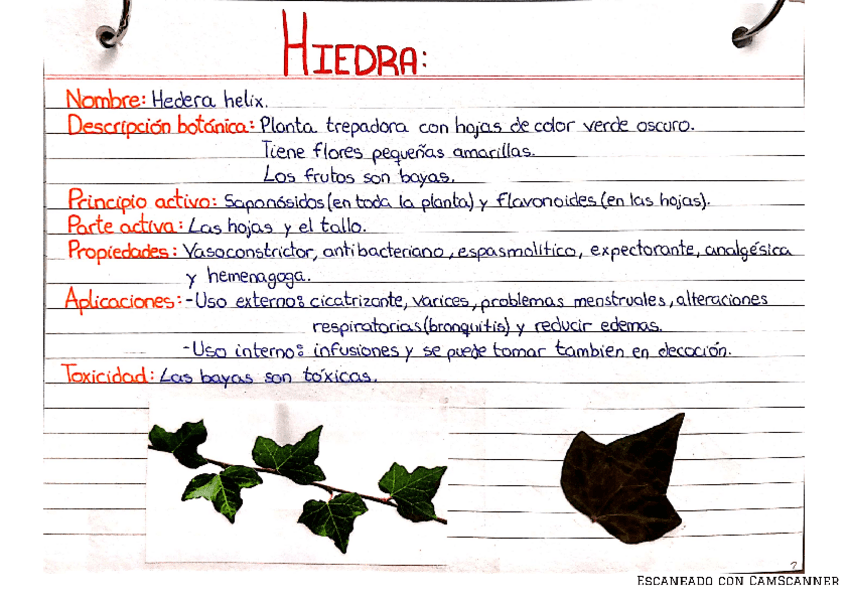 HIEDRA:
Nombre: Hedera helix.
Descripción botánica: Planta trepadora con hojas de color verde oscuro.
Tiene flores pequeñas amarillas.
Los frutos son bayas.
Principio activo: Saponósidos (en toda la planta) y flavonoides (en las hojas).
Parte activa: Las hojas y el tallo.
Propiedades: Vasoconstrictor, antibacteriano, espasmolítico, expectorante, analgésica
y hemenagoga.
Aplicaciones: -Uso externo: cicatrizante, varices, problemas menstruales, alteraciones
respiratorias (bronquitis) y reducir edemas.
-Uso interno: infusiones y se puede tomar tambien en decoción.
Toxicidad: Las bayas son tóxicas.
ESCANEADO CON CAMSCANNER